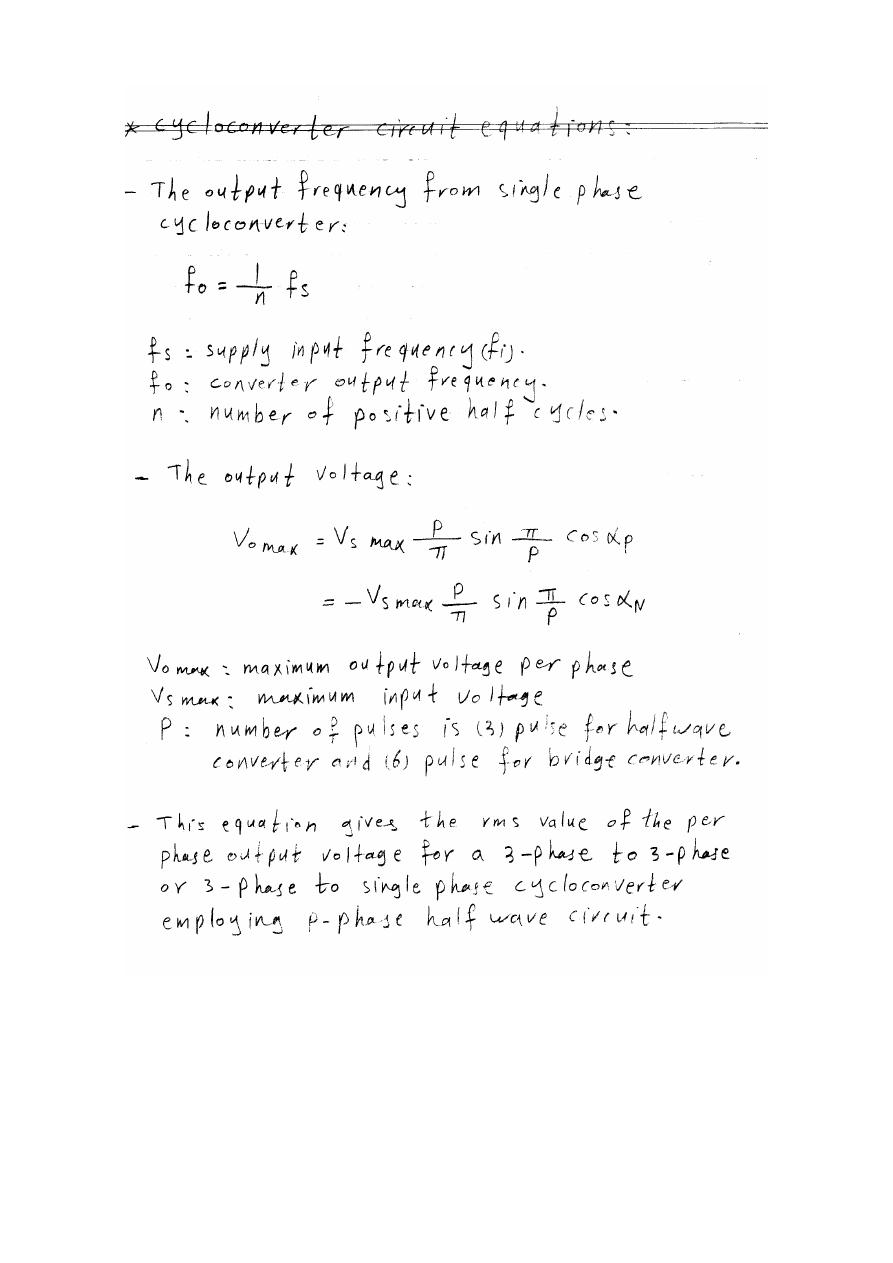 * cycloconverter circuit equations:
- The output frequency from single phase
cycloconverter:
fo = 1/n fs
fs : supply input frequency (fi).
fo : converter output frequency.
n : number of positive half cycles.
- The output voltage :
Vo max = Vs max P/π sin π/P cos αp
= - Vs max P/π sin π/P cos αN
Vo max : maximum output voltage per phase
Vs max : maximum input voltage
P : number of pulses is (3) pulse for halfwave
converter and (6) pulse for bridge converter.
- This equation gives the rms value of the per
phase output voltage for a 3-phase to 3-phase
or 3-phase to single phase cycloconverter
employing p-phase half wave circuit.